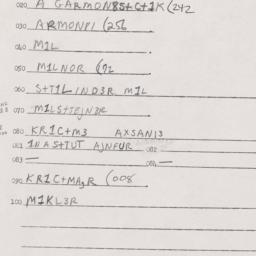 020 A GARMON8S+C+1K (242
030 ARMONFI (256
040 M1L
050 M1LNOR (92
060 S+T1LIND3R M1L
070 M1LS+TEJN3R
080 KR1C+M3 AXSAN13
081 1NAS+TUT AJNFUR 082
083 — 084 —
090 KR1C+MAJR (008
100 M1KL3R